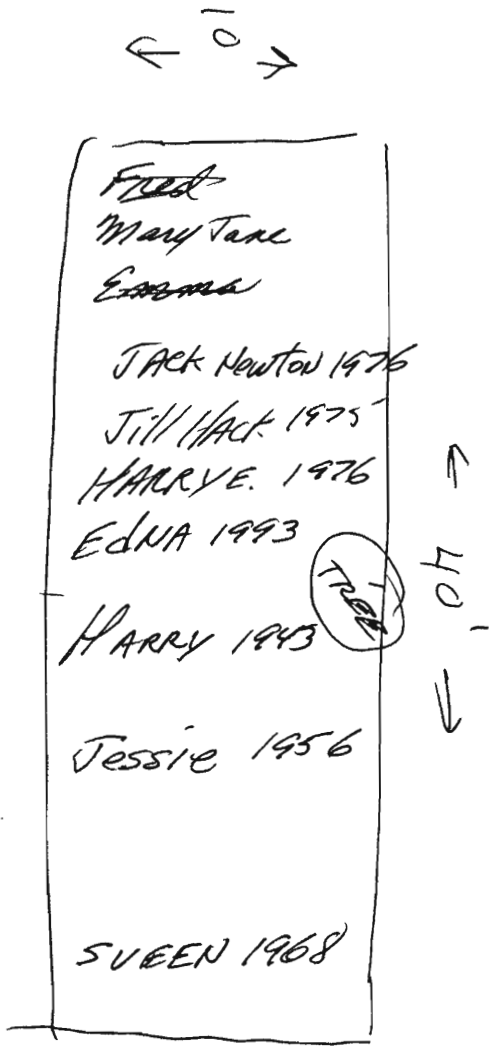 10'
Fred
Mary Jane
Emma
JACK Newton 1976
Jill HACK 1975
HARRY E. 1976
EdNA 1993
TREE
40'
HARRY 1943
Jessie 1956
SVEEN 1968